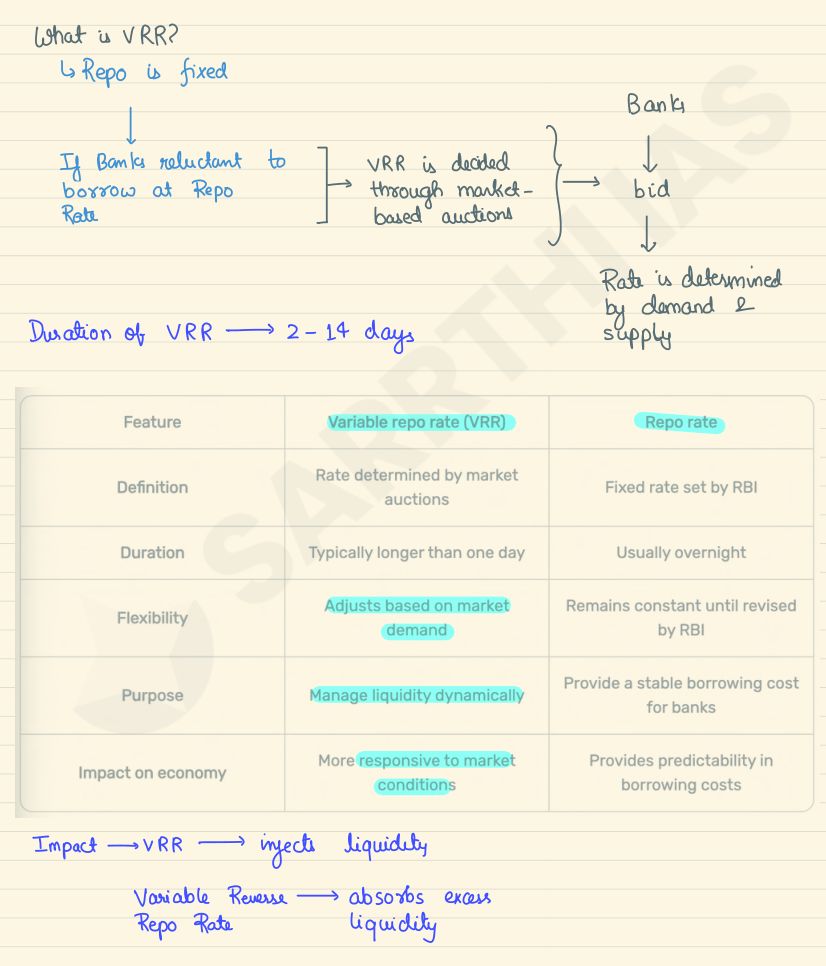 What is VRR?
↳ Repo is fixed
If Banks reluctant to
borrow at Repo
Rate
VRR is decided
through market-
based auctions
Banks
bid
Rate is determined
by demand &
supply
Duration of VRR → 2-14 days
Feature
Variable repo rate (VRR)
Repo rate
Definition
Rate determined by market
auctions
Fixed rate set by RBI
Duration
Typically longer than one day
Usually overnight
Flexibility
Adjusts based on market
demand
Remains constant until revised
by RBI
Purpose
Manage liquidity dynamically
Provide a stable borrowing cost
for banks
Impact on economy
More responsive to market
conditions
Provides predictability in
borrowing costs
Impact → VRR → injects liquidity
Variable Reverse → absorbs excess
Repo Rate liquidity
SARRTHI IAS